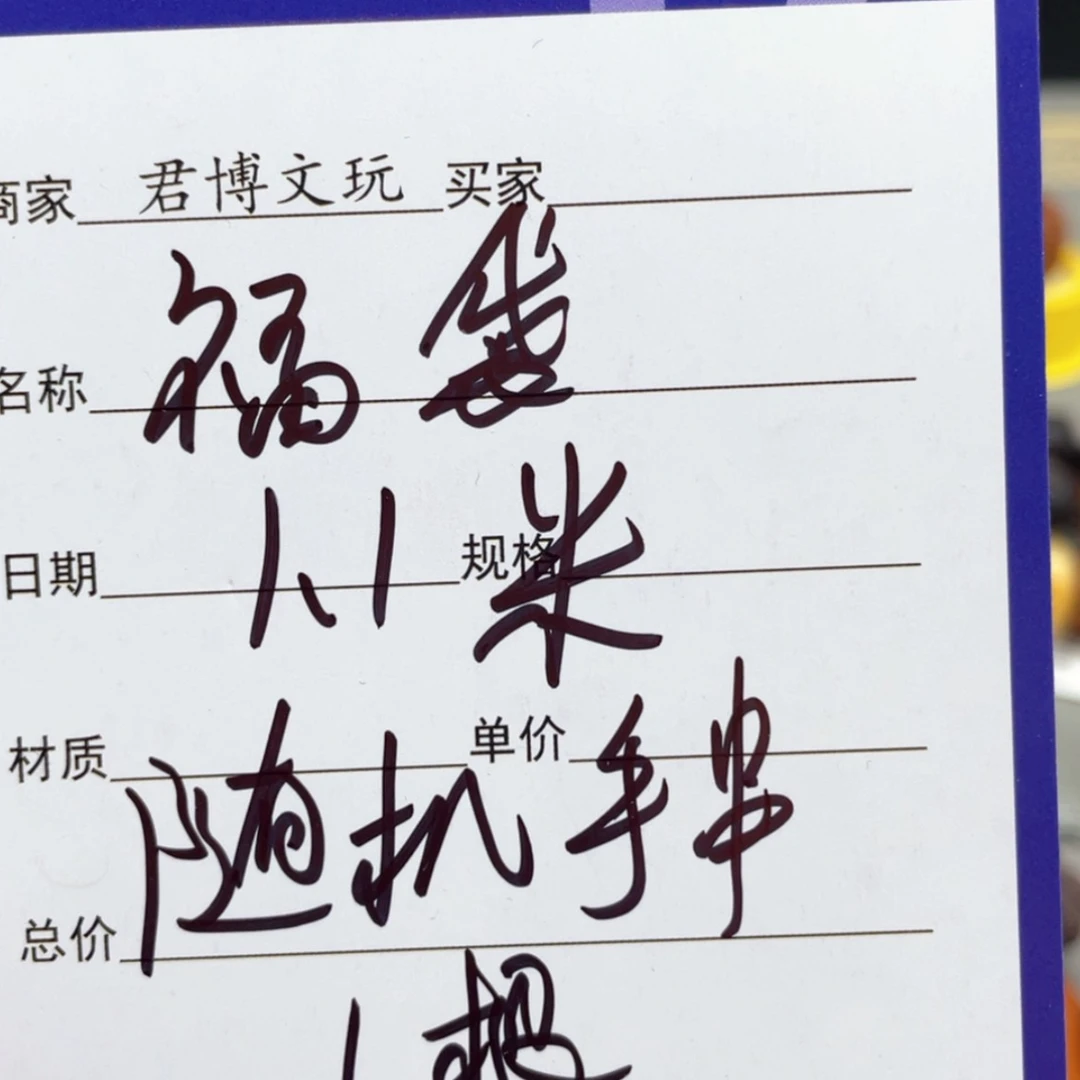 商家 君博文玩 买家
名称 福袋
日期 1.1米 规格
材质 单价
随机手串
总价
1